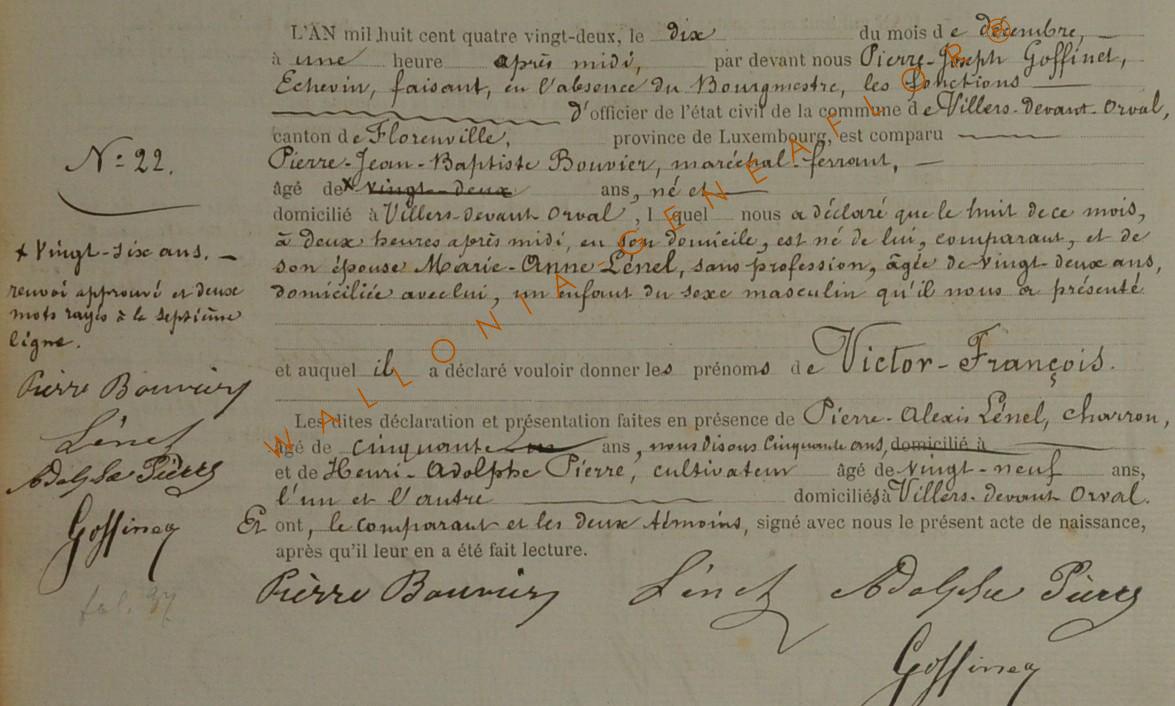 L'AN mil huit cent quatre vingt-deux, le dix du mois de décembre,
à une heure après midi, par devant nous Pierre-Joseph Goffinet,
Echevin, faisant, en l'absence du Bourgmestre, les fonctions
d'officier de l'état civil de la commune de Villers-devant-Orval,
canton de Florenville, province de Luxembourg, est comparu
Pierre-Jean-Baptiste Bouvier, maréchal-ferrant,
âgé de x vingt-deux ans, né et
domicilié à Villers-devant Orval, lequel nous a déclaré que le huit de ce mois,
à deux heures après midi, en son domicile, est né de lui, comparant, et de
son épouse Marie-Anne Lénel, sans profession, âgée de vingt-deux ans,
domiciliée avec lui, un enfant du sexe masculin qu'il nous a présenté
et auquel il a déclaré vouloir donner les prénoms de Victor-François.
Les dites déclaration et présentation faites en présence de Pierre-Alexis Lénel, charron,
âgé de cinquante ans, nous disons Cinquante ans, domicilié à
et de Henri-Adolphe Pierre, cultivateur âgé de vingt-neuf ans,
l'un et l'autre domiciliés à Villers-devant Orval.
Et ont, le comparant et les deux témoins, signé avec nous le présent acte de naissance,
après qu'il leur en a été fait lecture.
Pierre Bouvier Lénel Adolphe Pierre
Goffinet
N° 22.
x Vingt-six ans.
renvoi approuvé et deux
mots rayés à la septième
ligne.
Pierre Bouvier
Lénel
Adolphe Pierre
Goffinet
fol. 37
WALLONIA-GENEAFLOB®